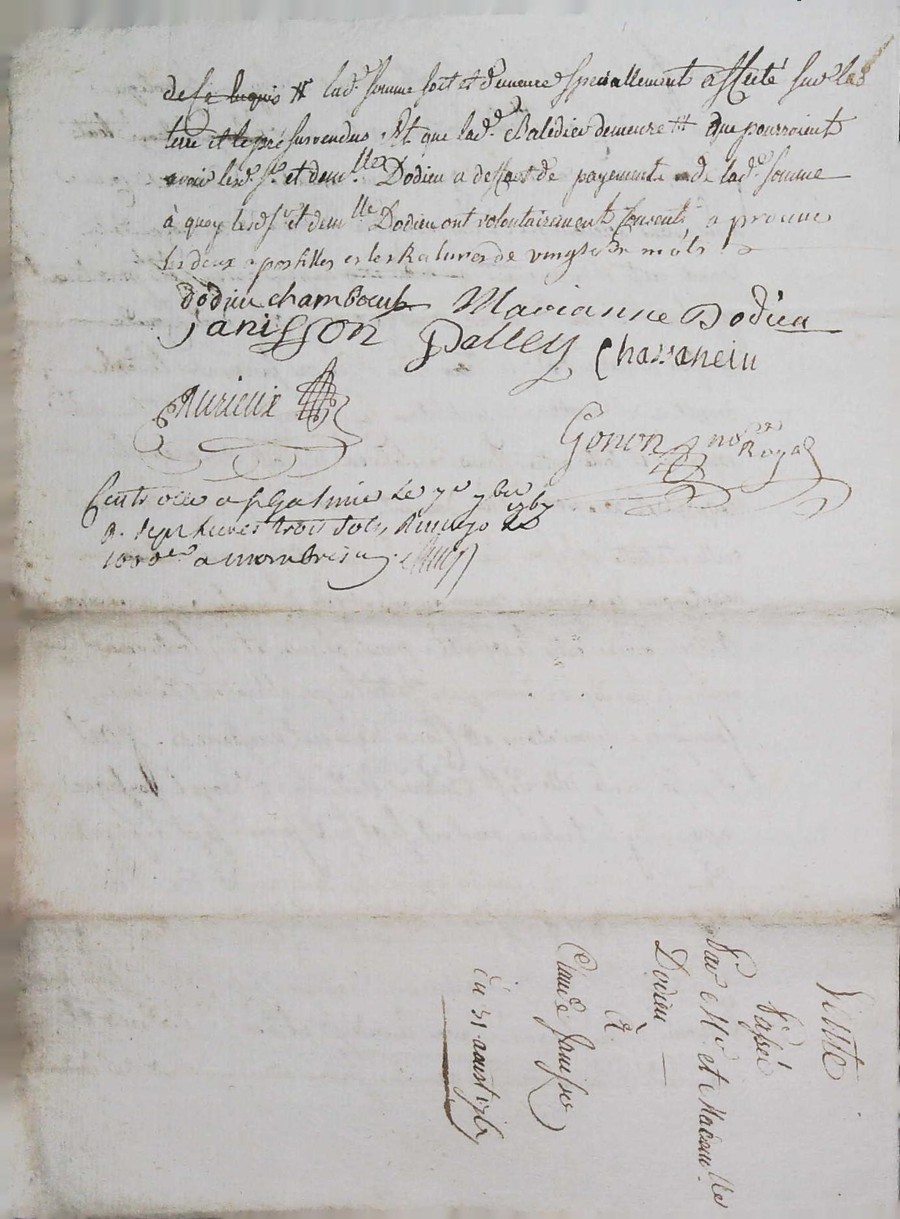 lad. somme soit et demeure speciallement affecté sur las
terre et le pré survendus Et que lad. Balédier demeure que pourroient
avoir lesd. Sr. et dem.lle Dodieu a deffaut de payement de lad. somme
à quoy lesd. Sr. et dem.lle Dodieu ont volontairement consenti, aprouve
les deux apostilles et les Ratures de vingt mots
dodieu chamboeuf Marianne Dodieu
janisson Palley Chassaneiu
Murieux
Gonon no.re Royal
Controllé a St Galmie Le 7e 7bre
R. sept livres trois sols,
a monbrison
Vente
Passée
Par Mr. et Madam.lle
Dodieu
à
Claude Janisson
Du 31 aoust